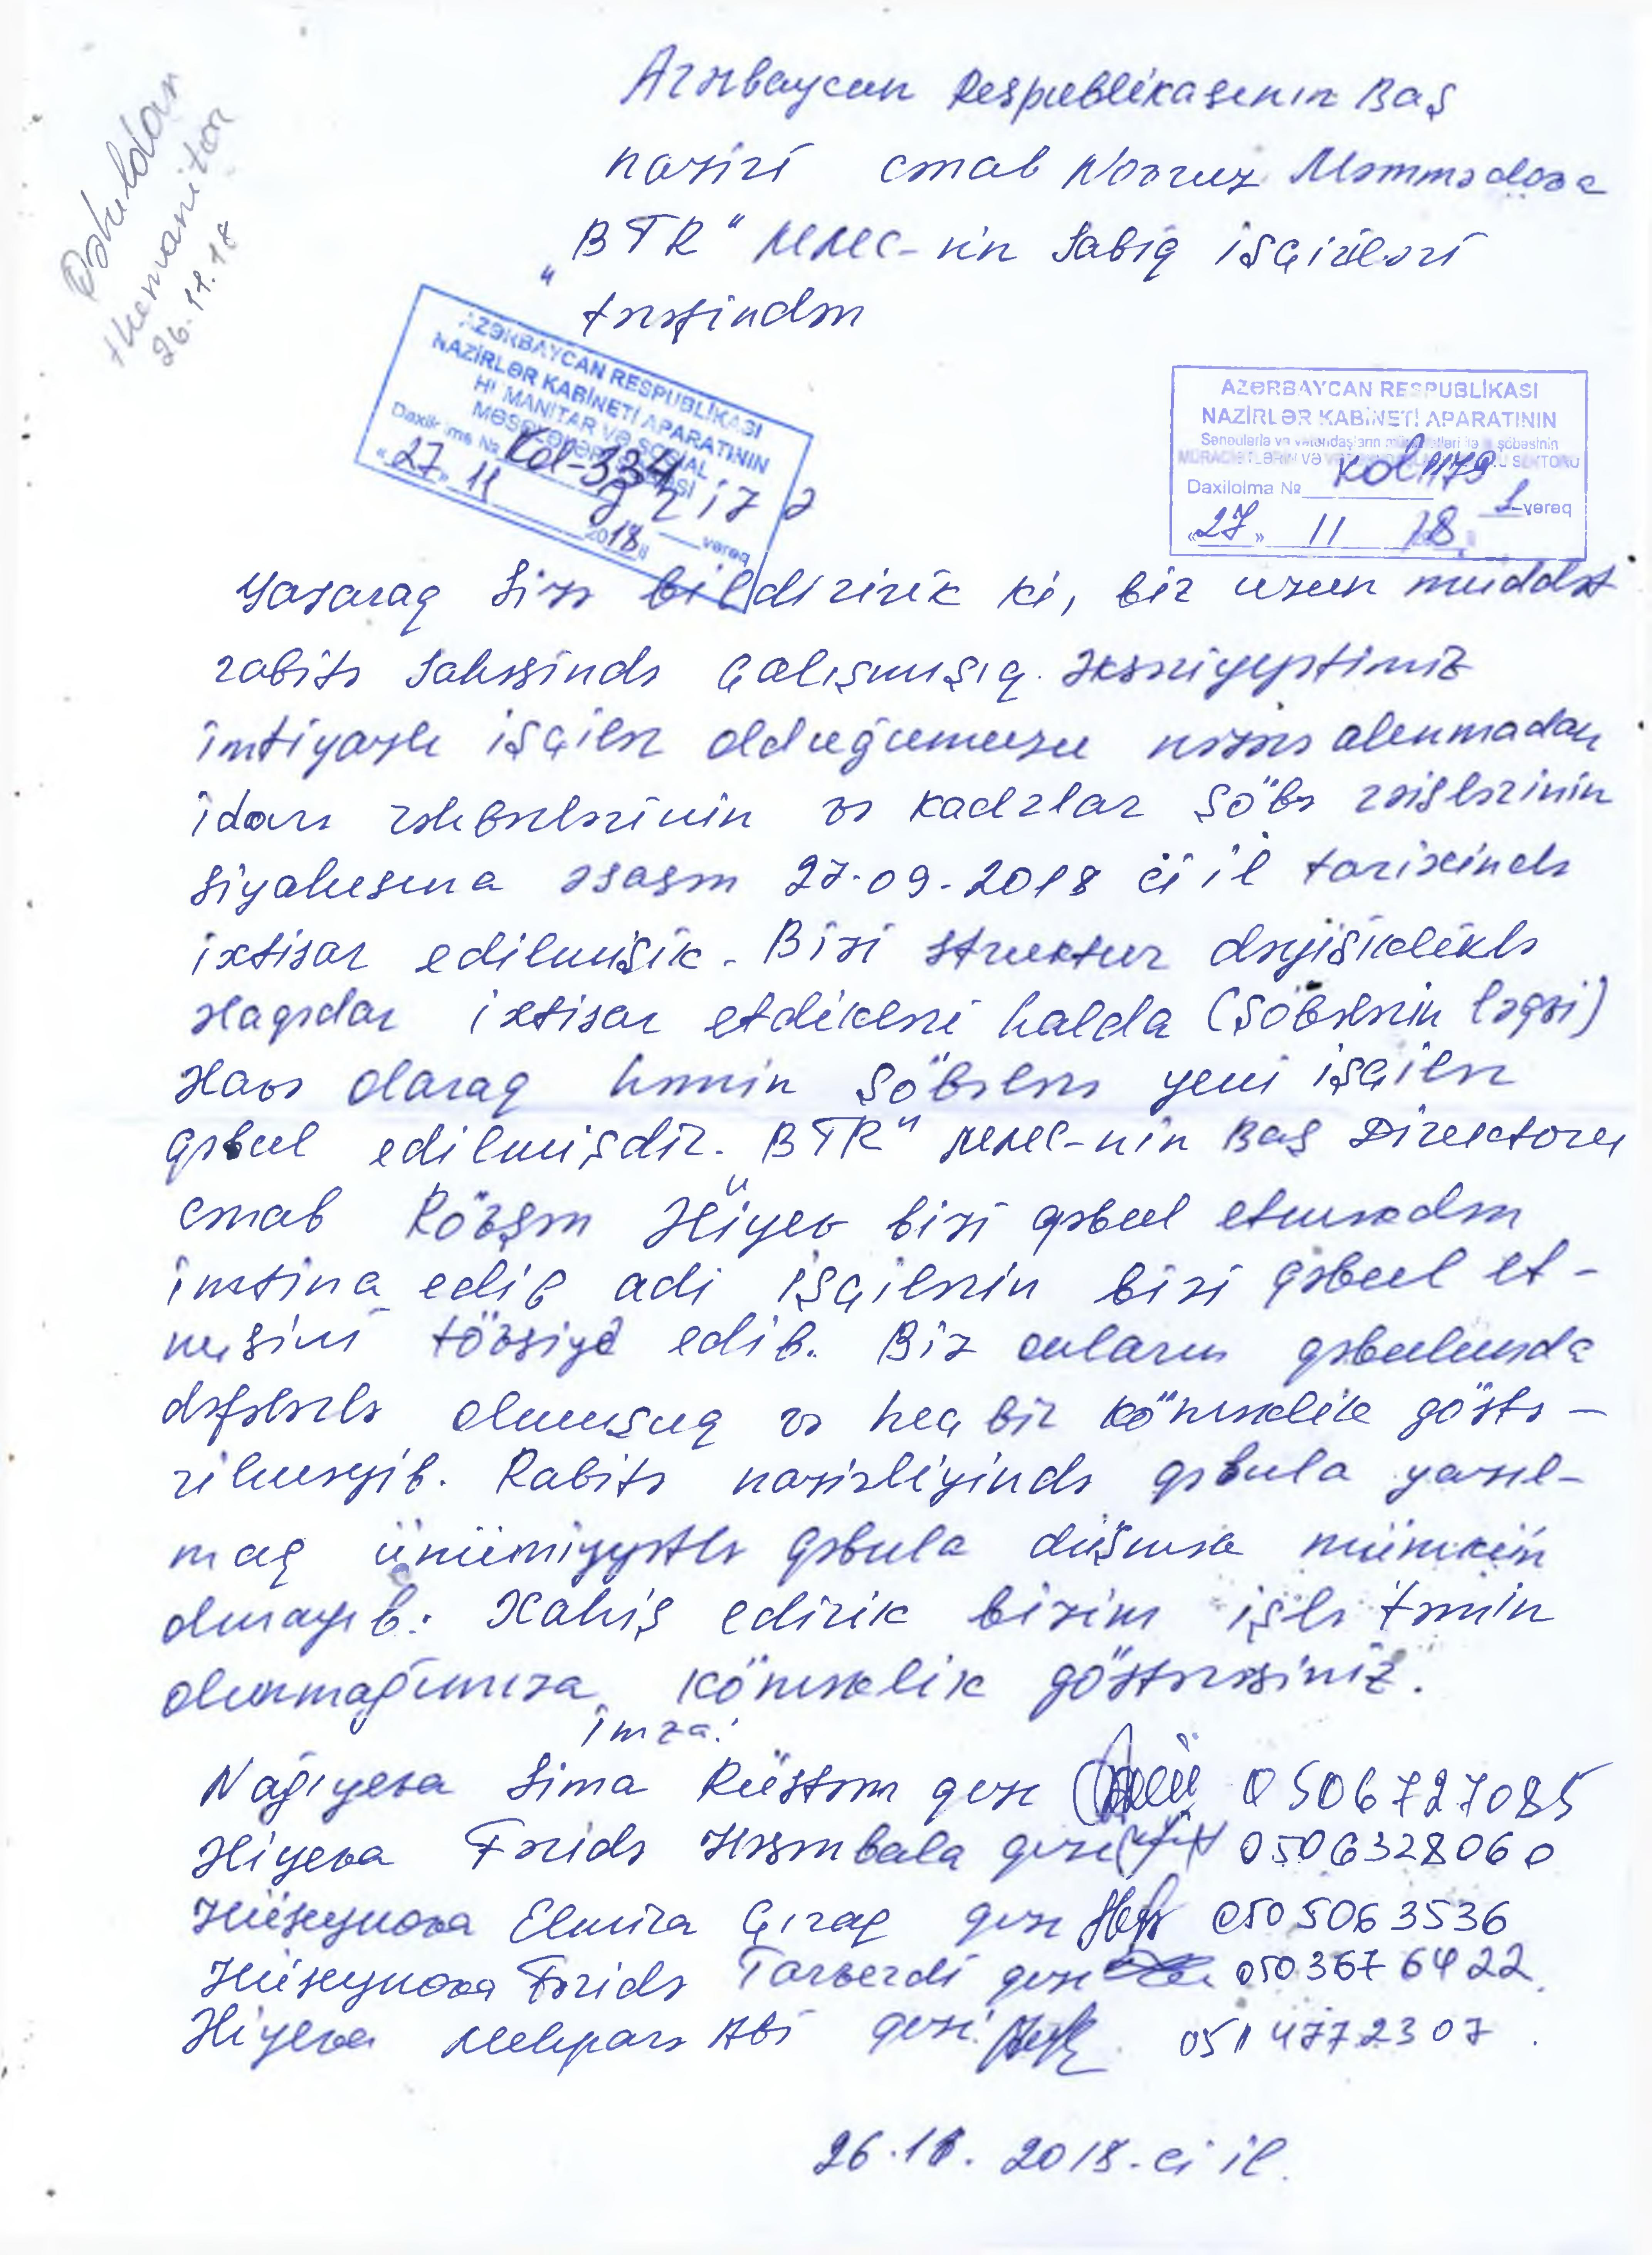 Qəbuldan
Humanitar
26.11.18
Azərbaycan Respublikasının Baş
naziri cənab Novruz Məmmədova
"BTR" MMC-nin sabiq işçiləri
tərəfindən
AZƏRBAYCAN RESPUBLİKASI
NAZİRLƏR KABİNETİ APARATININ
HUMANİTAR VƏ SOSIAL
MƏSƏLƏLƏR ŞÖBƏSİ
Daxilolma № Kol-334
"27" 11 2018 il vərəq
AZƏRBAYCAN RESPUBLİKASI
NAZİRLƏR KABİNETİ APARATININ
Sənədlərlə və vətəndaşların müraciətləri ilə iş şöbəsinin
MÜRACİƏTLƏRİN VƏ SEKTORU
Daxilolma № Kol 1179
"27" 11 18 1 vərəq
Yazaraq Sizə bildiririk ki, biz uzun müddət
rabitə sahəsində çalışmışıq. Əksəriyyətimiz
imtiyazlı işçilər olduğumuzu nəzərə alınmadan
idarə rəhbərlərinin və kadrlar şöbə rəislərinin
siyahısına əsasən 27.09.2018 ci il tarixində
ixtisar edilmişik. Bizi struktur dəyişikliklə
əlaqədar ixtisar etdikləri halda (şöbələrin ləğvi)
əlavə olaraq həmin şöbələrə yeni işçilər
qəbul edilmişdir. "BTR" MMC-nin Baş Direktoru
cənab Rövşən Əliyev bizi qəbul etməkdən
imtina edib adi işçilərin bizi qəbul et-
məsini tövsiyə edib. Biz onların qəbulunda
dəfələrlə olmuşuq və heç bir köməklik göstə-
rilməyib. Rabitə nazirliyində qəbula yazıl-
maq ümümiyyətlə qəbula düşmək mümkün
olmayıb. Xahiş edirik bizim işlə təmin
olunmağımıza köməklik göstərəsiniz.
İmza:
Nağıyeva Sima Rüstəm qızı 0506727085
Əliyeva Fəridə Həsənbala qızı 0506328060
Hüseynova Elmira Çıraq qızı 050 506 3536
Hüseynova Fəridə Tarverdi qızı 050 367 64 22
Əliyeva Mehparə Abı qızı 051 4772307
26.11.2018-ci il.